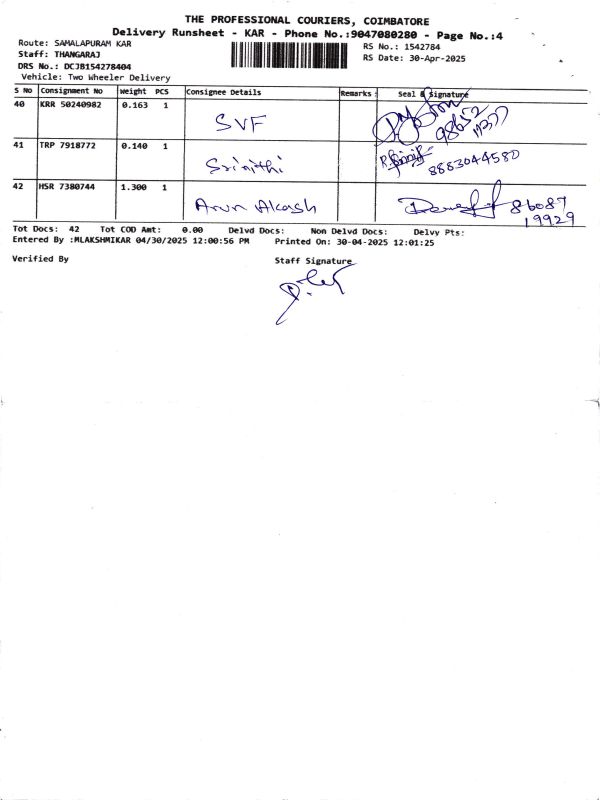 THE PROFESSIONAL COURIERS, COIMBATORE
Delivery Runsheet - KAR - Phone No.:9047080280 - Page No.:4
Route: SAMALAPURAM KAR
RS No.: 1542784
Staff: THANGARAJ
RS Date: 30-Apr-2025
DRS No.: DCJB154278404
Vehicle: Two Wheeler Delivery
S No Consignment No Weight PCS Consignee Details Remarks Seal & Signature
40 KRR 50240982 0.163 1 SVF 98652
41 TRP 7918772 0.140 1 Srinithi 8883044580
42 HSR 7380744 1.300 1 Arun Akash 86087
19929
Tot Docs: 42 Tot COD Amt: 0.00 Delvd Docs: Non Delvd Docs: Delvy Pts:
Entered By :MLAKSHMIKAR 04/30/2025 12:00:56 PM Printed On: 30-04-2025 12:01:25
Verified By Staff Signature